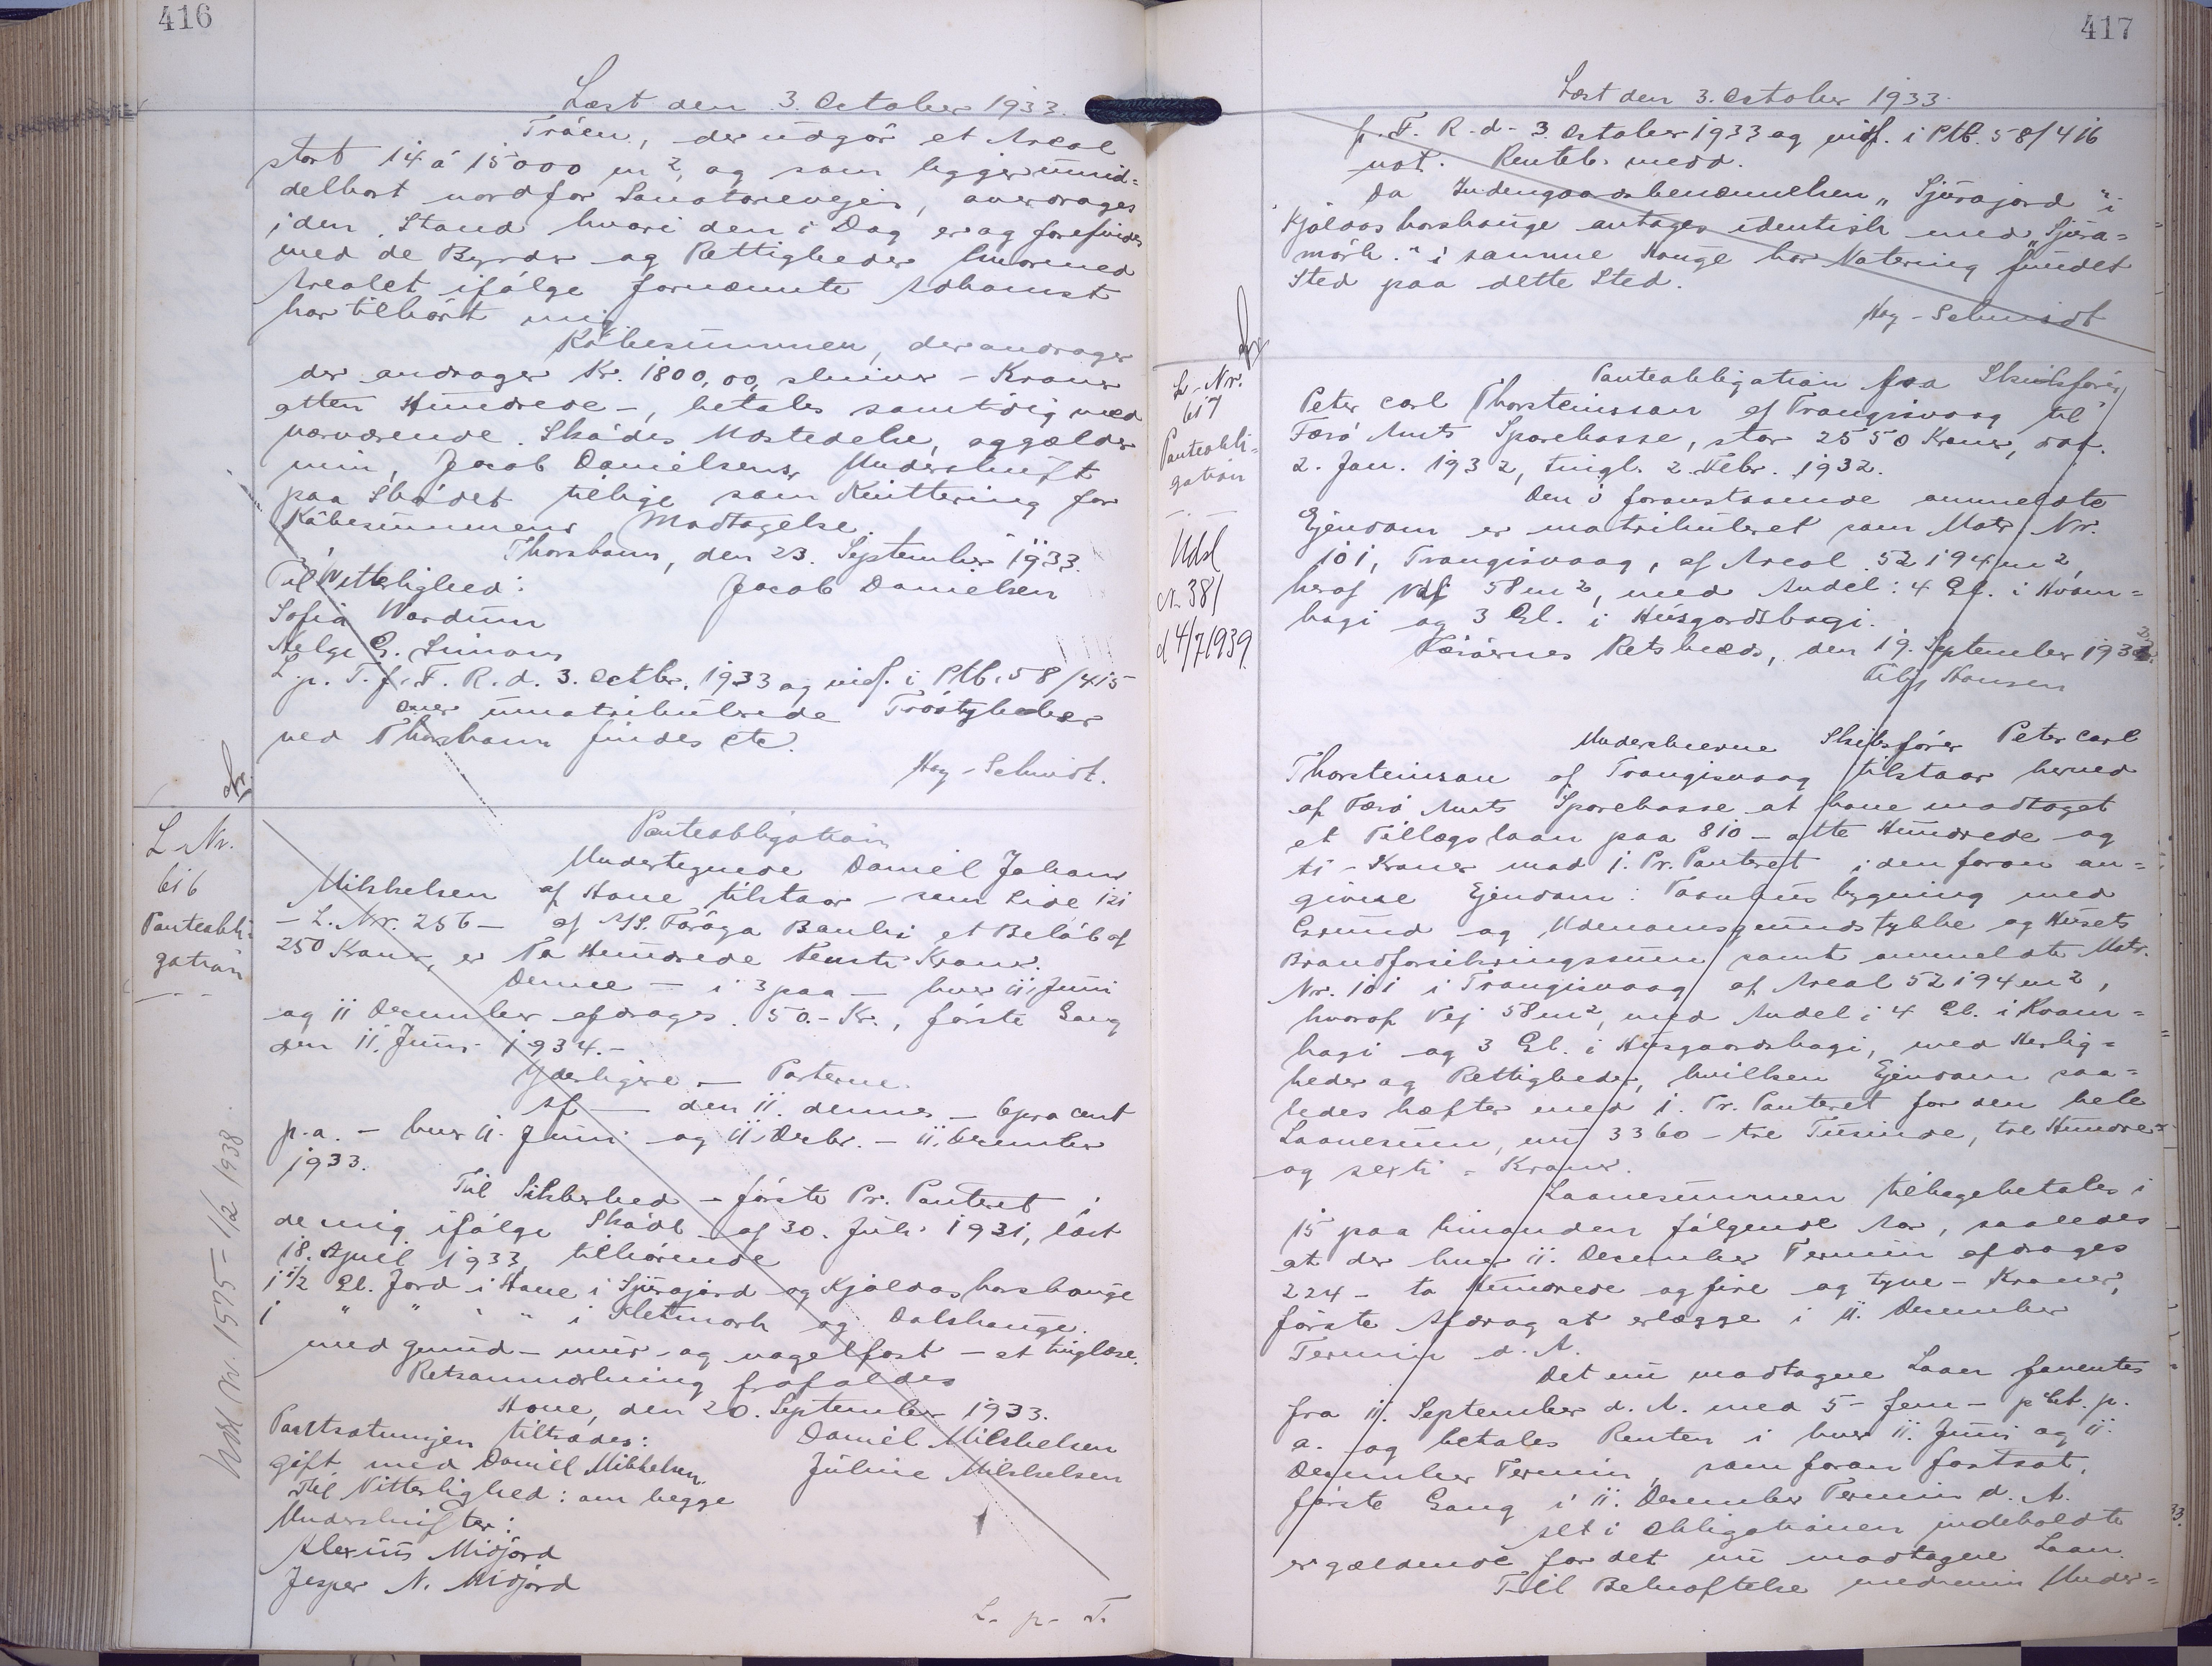 416
Læst den 3. October 1933.
Tróen, der udgór et Areal
stort 14 á 15000 m2, og som ligger umid=
delbart nordfor Sanatorievejen, overdrages
i den Stand hvori den i Dag er og forefindes
med de Byrder og Rettigheder hvormed
Arealet ifólge fornævnte Adkomst
har tilhórt mig
Kóbesummen, der andrager
der andrager Kr. 1800,00, skriver - Kroner
atten Hundrede -, betales samtidig med
nærværende Skódes Udstedelse, og gælder
min, Jacob Danielsens, Underskrift
paa Skódet tillige som Kvittering for
Kóbesummens Modtagelse.
Thorshavn, den 23. September 1933.
Til Vitterlighed: Jacob Danielsen
Sofia Wardum
Helge G. Simons
L. p. T. f. F. R. d. 3. Octbr. 1933 og indf. i Ptb. 58/415
over umatrikulerede Tróstykker
ved Thorshavn findes etc.
Hoy-Schmidt.
L. Nr.
616
Panteobli=
gation
Udsl Nr. 1575 - 1/2 1938
Panteobligation
Undertegnede Daniel Johann
Mikkelsen af Hove tilstaar - som Side 121
- L. Nr. 256 - af A/S. Fóroya Banki et Belób af
250 Kroner, er To Hundrede Femti Kroner.
Denne - i 3 paa - hver 11. Juni
og 11 December afdrages 50.- Kr., fórste Gang
den 11. Juni 1934.-
Yderligere - Parterne.
Af - den 11. dennes - 6 pro cent
p.a. - hver 11. Juni og 11. Decbr. - 11. December
1933.
Til Sikkerhed - fórste Pr. Panteret i
de mig ifólge Skóde af 30. Juli 1931, læst
18. April 1933 tilhórende
1 1/2 Gl. Jord i Hove i Sjúrajord og Kjaldasharshauge
1 " " " " i Kletmork og Dalshauge.
med grund- mur- og nagelfast - at tinglæse.
Retsanmærkning frafaldes
Hove, den 20. September 1933.
Pantsætningen tiltrædes: Daniel Mikkelsen
gift med Daniel Mikkelsen. Júline Mikkelsen
Til Vitterlighed: om begge
Underskrifter:
Alexius Midjord
Jesper N. Midjord
L. p. T.
417
Læst den 3. October 1933.
f. F. R. d. 3. October 1933 og indf. i Ptb. 58/416
not. Renteb. medd.
Da Indengaardsbenævnelsen "Sjúrajord" i
Kjaldasharshauge antages identisk med "Sjúra=
mórk" i samme Hauge har Notering fundet
Sted paa dette Sted.
Hoy-Schmidt
L. Nr.
617
Panteobli=
gation
Udsl
Nr. 381
d 4/7 1939.
Panteobligation fra Skibsfórer
Peter Carl Thorsteinsson af Trangisvaag til
Færó Amts Sparekasse, stor 2550 Kroner, dat.
2. Jan. 1932, tingl. 2. Febr. 1932.
Den i foranstaaende ommeldte
Ejendom er matrikuleret som Matr. Nr.
101, Trangisvaag, af Areal 52194 m2,
heraf Vej 58 m2, med Andel: 4 Gl. i Hvam=
hagi og 3 Gl. i Húsgardshagi.
Fæóernes Retskreds, den 19. September 1933.
Alf Hansen
Underskrevne Skibsfórer Peter Carl
Thorsteinsson af Trangisvaag tilstaar herved
af Færó Amts Sparekasse at have modtaget
et Tillægslaan paa 810 - otte Hundrede og
ti - Kroner mod 1. Pr. Panteret i den foran an=
givne Ejendom: Vaanhusbygning med
Grund og Udenomsgrundstykke og Husets
Brandforsikringssum samt ommeldte Matr.
Nr. 101 i Trangisvaag af Areal 52194 m2,
hvoraf Vej 58 m2, med Andel i 4 Gl. i Kvam=
hagi og 3 Gl. i Húsgaardshagi, med Herlig=
heder og Rettigheder, hvilken Ejendom saa=
ledes hæfter med 1. Pr. Panteret for den hele
Laanesum, nu 3360 - tre Tusinde, tre Hundrede
og sexti - Kroner.
Laanesummen tilbagebetales i
15 paa hinanden fólgende Aar, saaledes
at der hver 11. December Termin afdrages
224 - to Hundrede og fire og tyve - Kroner,
fórste Afdrag at erlægge i 11. December
Termin d. A.
Det nu modtagne Laan forrentes
fra 11. September d. A. med 5 - fem - pCt. p.
a. og betales Renten i hver 11. Juni og 11.
December Termin, som foran fastsat,
fórste Gang i 11. December Termin d. A.
Alt i Obligationen indeholdte
er gældende for det nu modtagne Laan.
Til Bekræftelse med min Under=